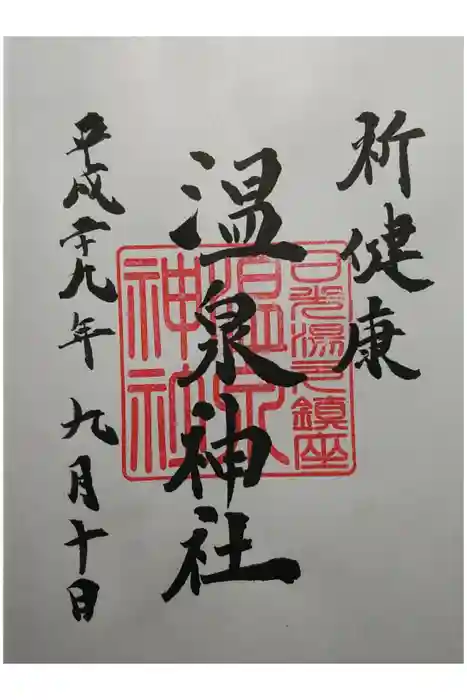 祈健康
温泉神社
平成二十九年 九月十日
日光湯元鎮座
温泉
神社